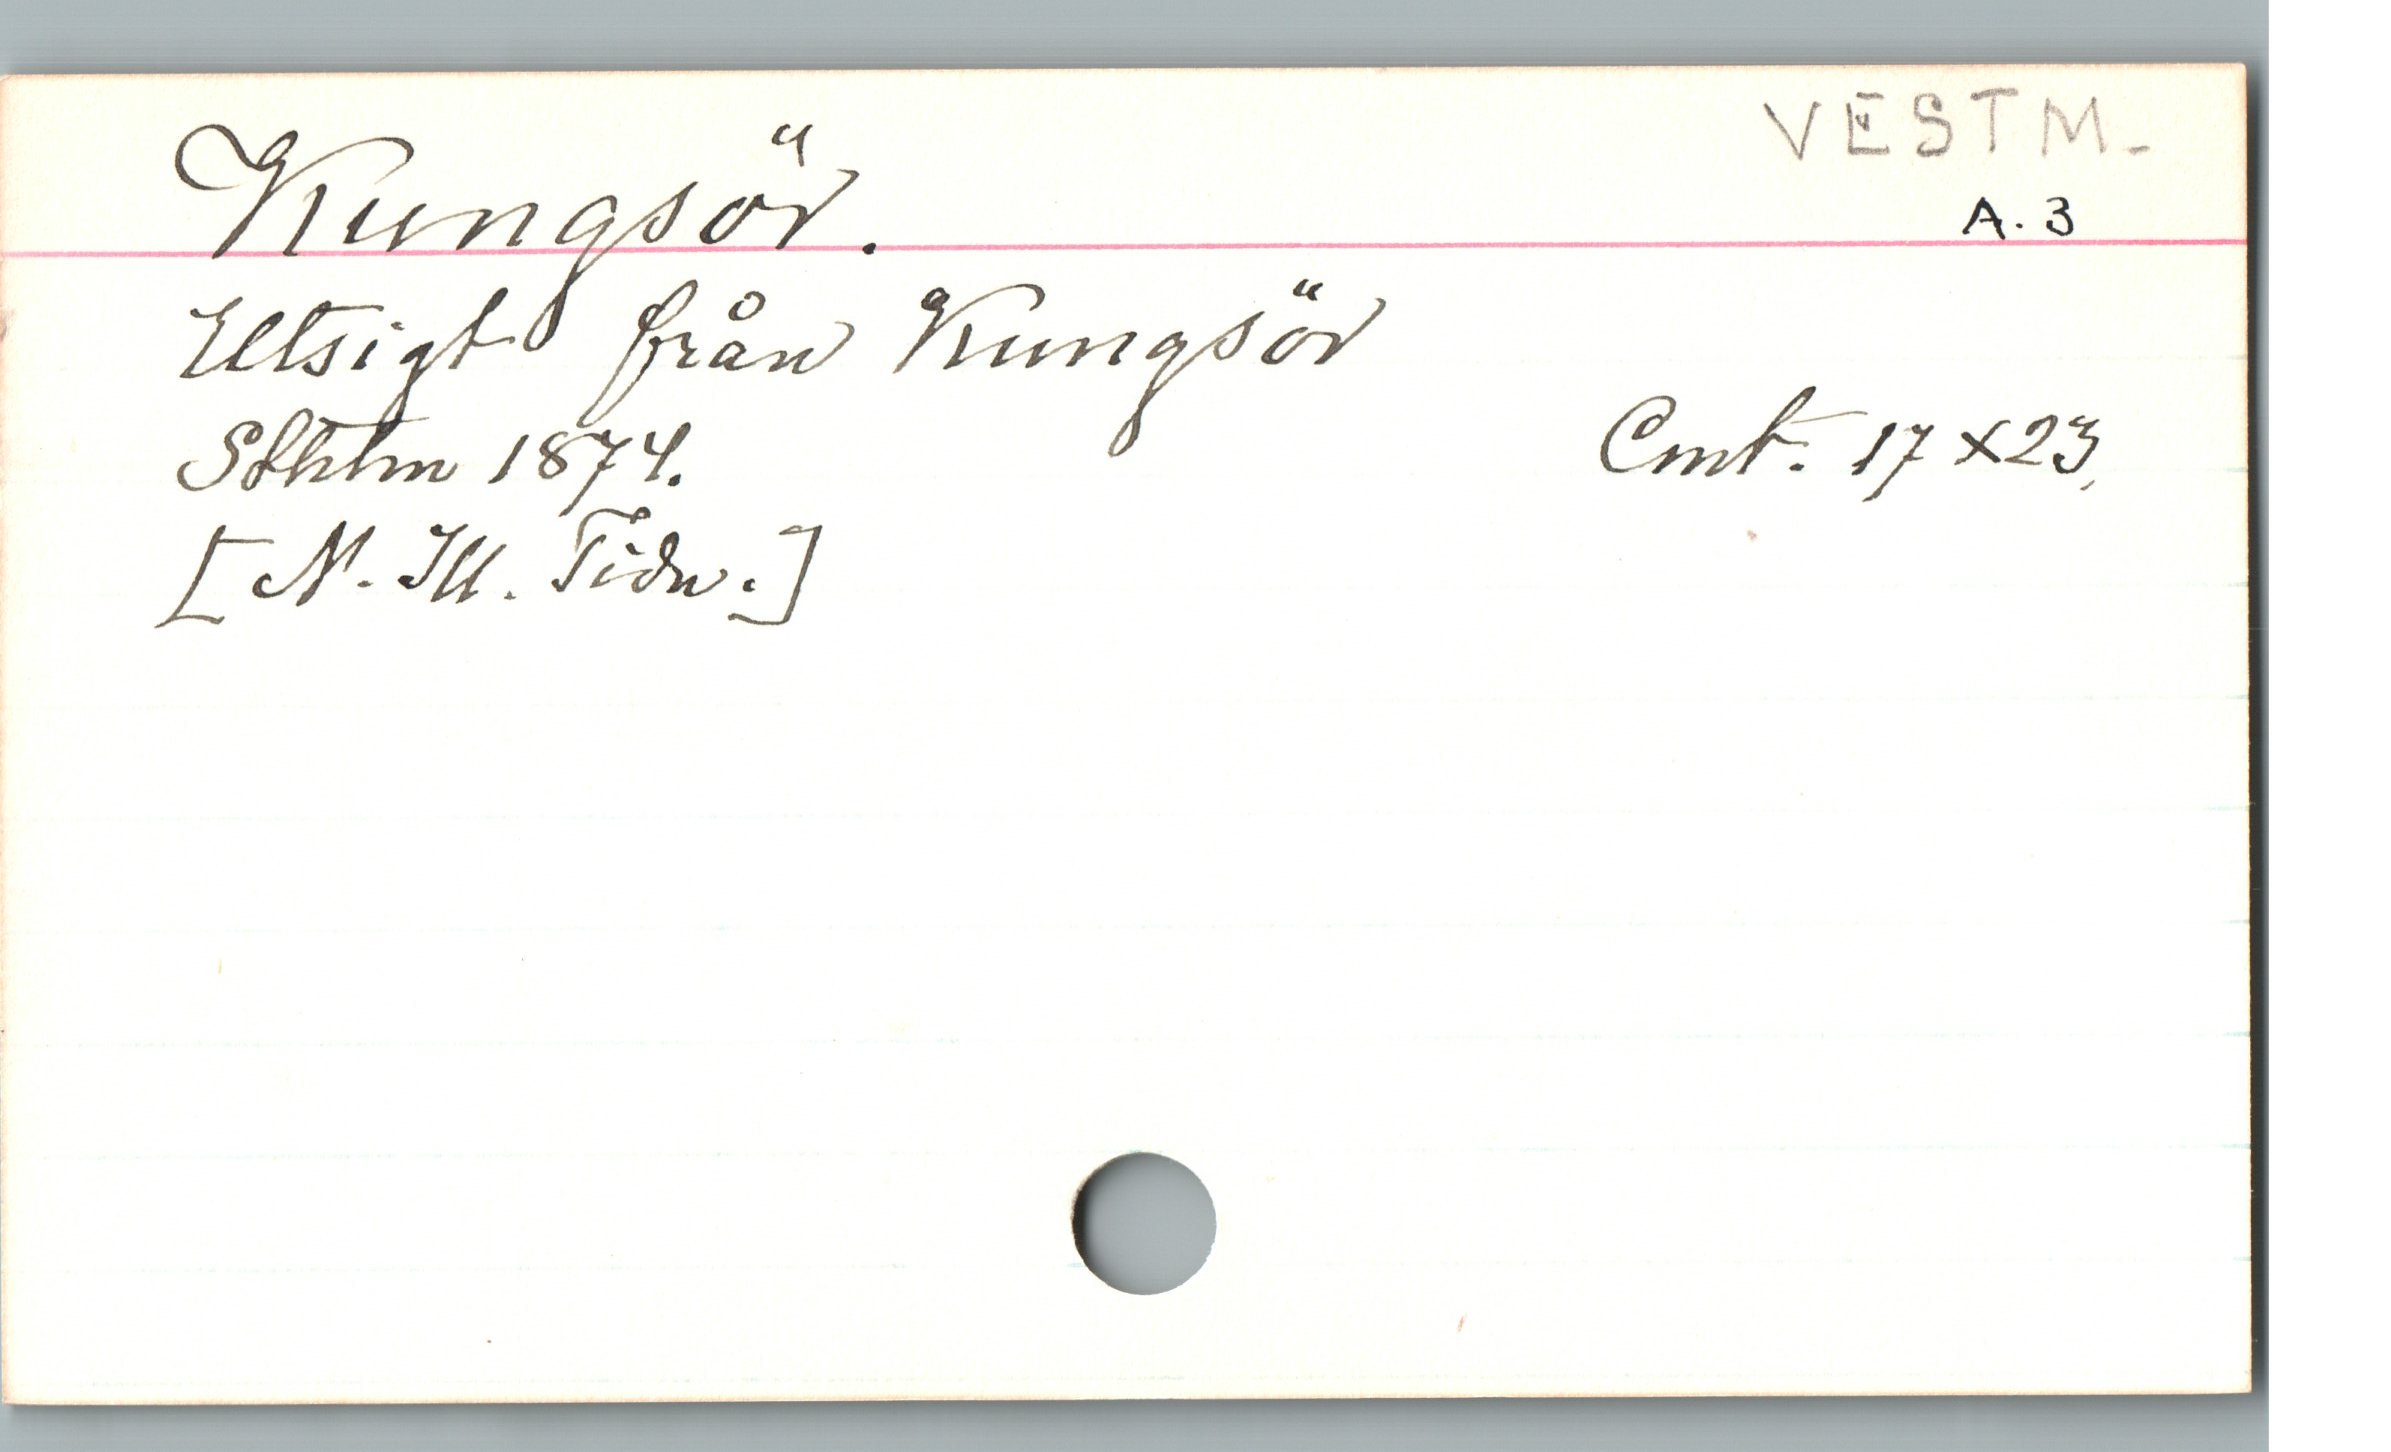 VESTM.
Kungsör.
A. 3
Utsigt från Kungsör
Sthlm 1874.
Cmt. 17 x 23,
[N. Ill. Tidn.]